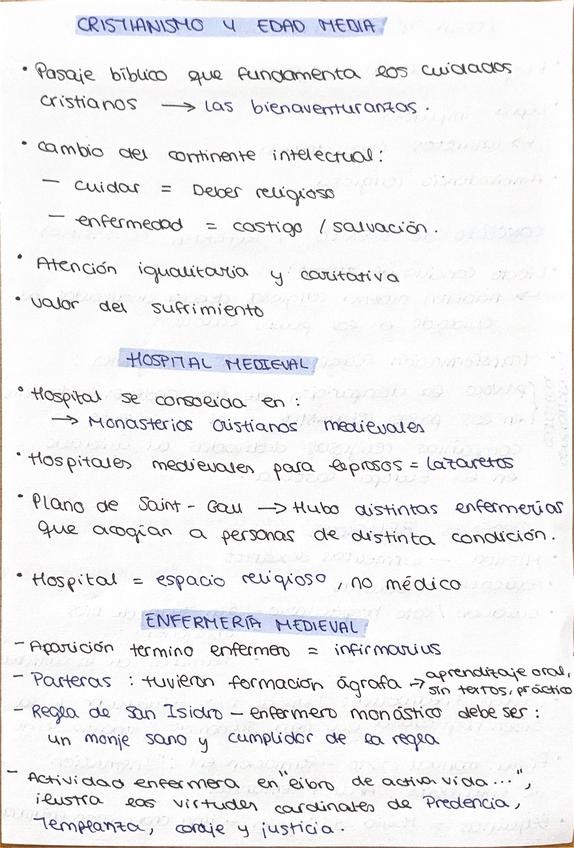 CRISTIANISMO Y EDAD MEDIA
• Pasaje bíblico que fundamenta los cuidados
cristianos → las bienaventuranzas.
• cambio del continente intelectual:
– cuidar = Deber religioso
– enfermedad = castigo / salvación.
• Atención igualitaria y caritativa
• valor del sufrimiento
HOSPITAL MEDIEVAL
• Hospital se consolida en :
→ Monasterios cristianos medievales
• Hospitales medievales para leprosos = lazaretos
• Plano de Saint-Gall → Hubo distintas enfermerías
que acogían a personas de distinta condición.
• Hospital = espacio religioso, no médico
ENFERMERÍA MEDIEVAL
– Aparición termino enfermero = infirmarius
– Parteras : tuvieron formación ágrafa → aprendizaje oral,
sin textos, práctico
– Regla de San Isidro – enfermero monástico debe ser :
un monje sano y cumplidor de la regla
– Actividad enfermera en "Libro de activa vida...",
ilustra las virtudes cardinales de Predencia,
Templanza, coraje y justicia.